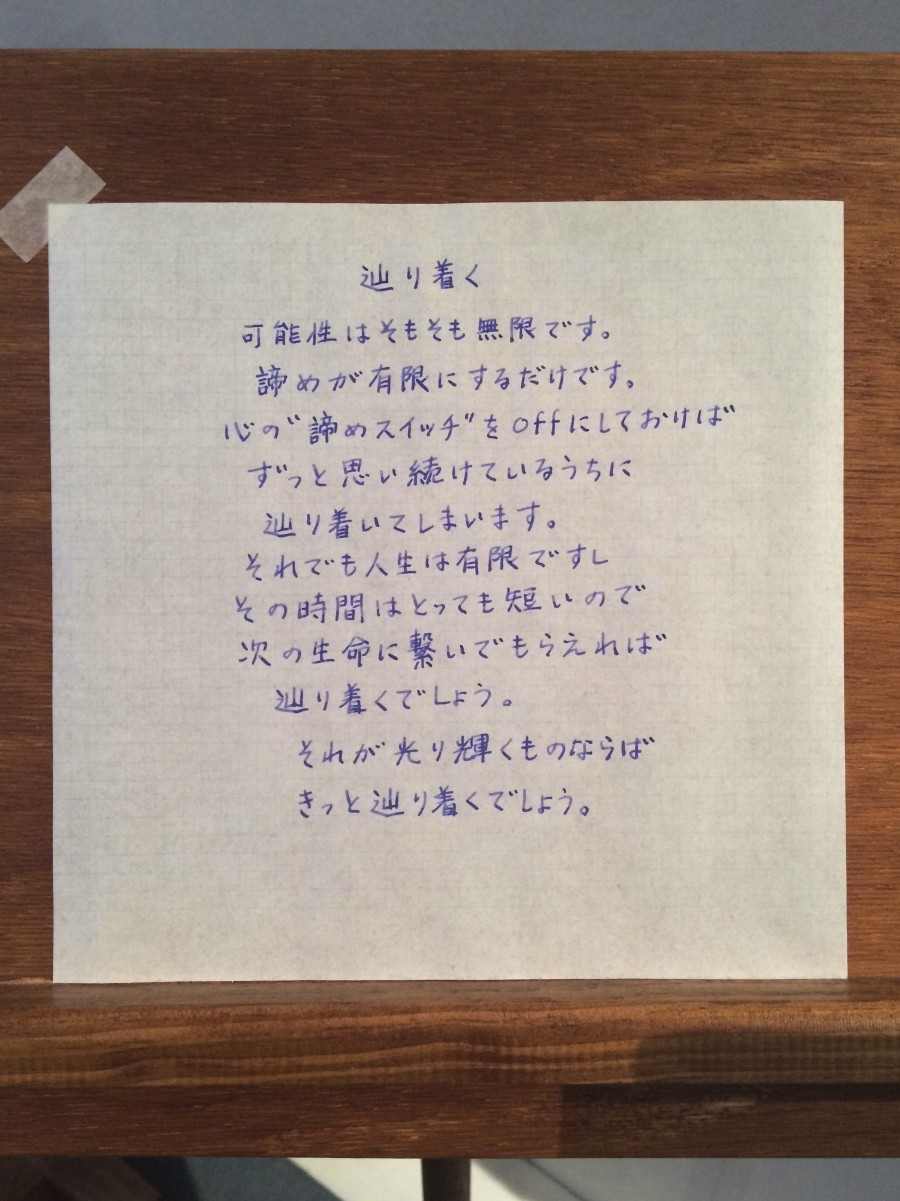 辿り着く
可能性はそもそも無限です。
諦めが有限にするだけです。
心の"諦めスイッチ"をoffにしておけば
ずっと思い続けているうちに
辿り着いてしまいます。
それでも人生は有限ですし
その時間はとっても短いので
次の生命に繋いでもらえれば
辿り着くでしょう。
それが光り輝くものならば
きっと辿り着くでしょう。